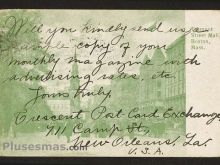 Will you kindly send us a
sample copy of your
monthly magazine with
advertising rates, etc.
Yours truly
Crescent Post Card Exchange
711 Camp St,
New Orleans, La.
U.S.A.
Boston,
Mass.
Plusesmas.com